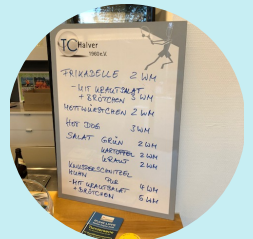 TC Halver
1960 e.V.
FRIKADELLE 2 WM
- MIT KRAUTSALAT
+ BRÖTCHEN 3 WM
METTWÜRSTCHEN 2 WM
HOT DOG 3 WM
SALAT GRÜN 2 WM
KARTOFFEL 2 WM
KRAUT 2 WM
KNUSPERSCHNITZEL
HUHN PUR
- MIT KRAUTSALAT 4 WM
+ BRÖTCHEN 5 WM